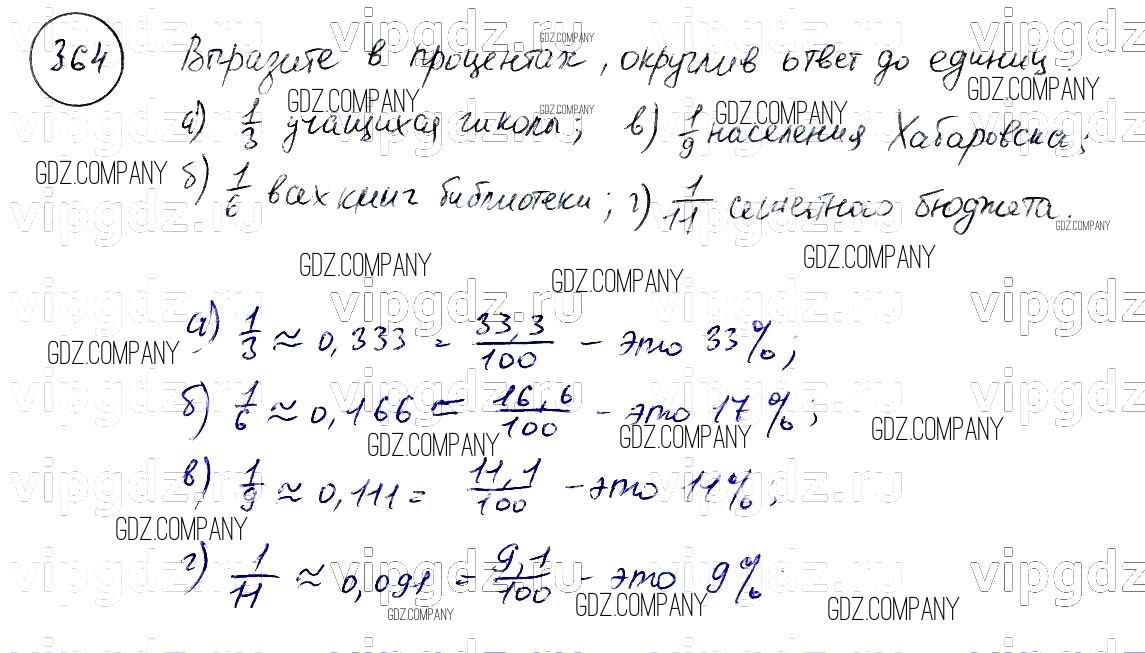 364 Выразите в процентах, округлив ответ до единиц.
а) 1/3 учащихся школы; в) 1/9 населения Хабаровска;
б) 1/6 всех книг библиотеки; г) 1/11 семейного бюджета.
а) 1/3 ≈ 0,333 = 33,3/100 - это 33%;
б) 1/6 ≈ 0,166 = 16,6/100 - это 17%;
в) 1/9 ≈ 0,111 = 11,1/100 - это 11%;
г) 1/11 ≈ 0,091 = 9,1/100 - это 9%
vipgdz.ru
GDZ.COMPANY